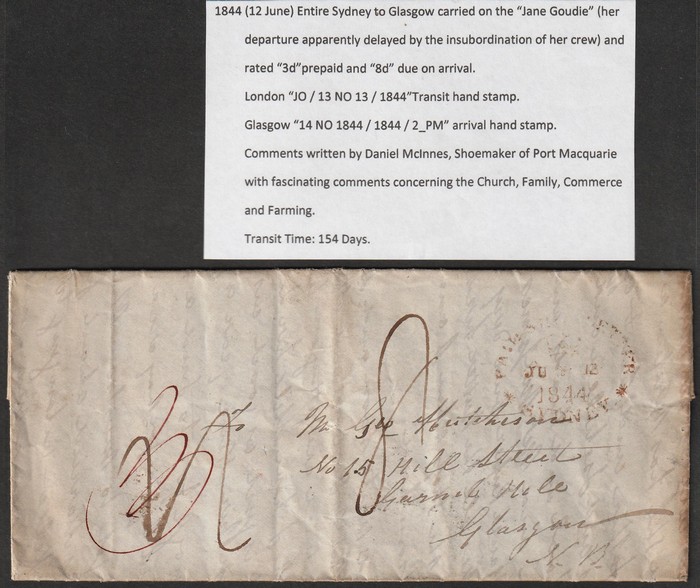 1844 (12 June) Entire Sydney to Glasgow carried on the “Jane Goudie” (her
departure apparently delayed by the insubordination of her crew) and
rated “3d”prepaid and “8d” due on arrival.
London “JO / 13 NO 13 / 1844”Transit hand stamp.
Glasgow “14 NO 1844 / 1844 / 2_PM” arrival hand stamp.
Comments written by Daniel McInnes, Shoemaker of Port Macquarie
with fascinating comments concerning the Church, Family, Commerce
and Farming.
Transit Time: 154 Days.
PAID SHIP LETTER
JU 12
1844
SYDNEY
3
8
To Mr Geo Hutchison
No 15 Hill Street
Garnet Hole
Glasgow
N.B.